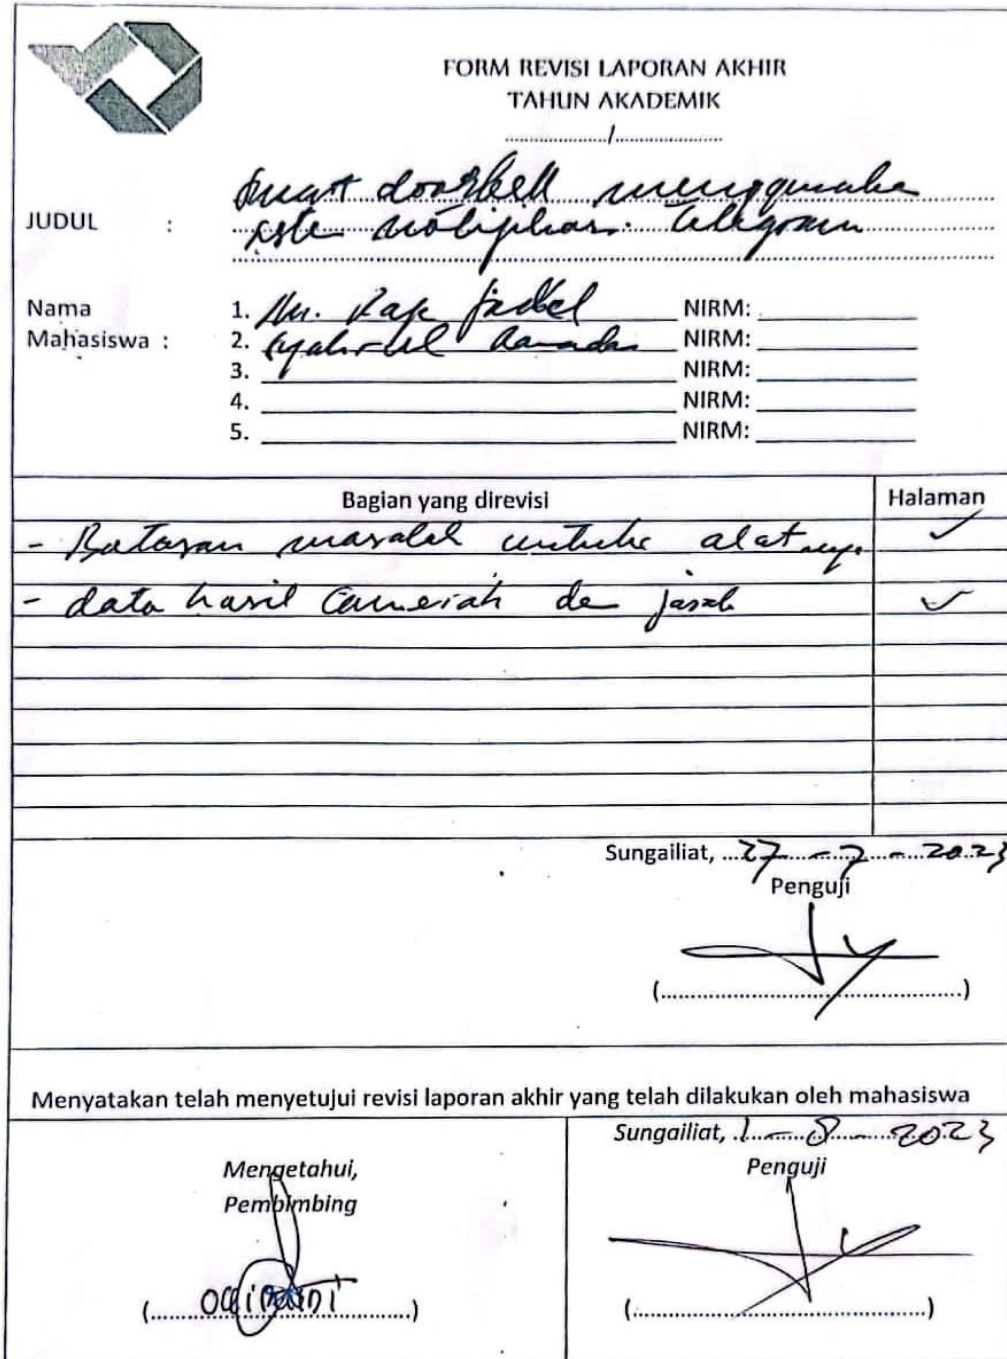 FORM REVISI LAPORAN AKHIR
TAHUN AKADEMIK
............/............
JUDUL :
Smart doorbell menggunaka
notifikasi Telegram
Nama
Mahasiswa :
1. Mu. NIRM:
2. Syahrul Ramadan NIRM:
3. NIRM:
4. NIRM:
5. NIRM:
Bagian yang direvisi Halaman
- Batasan masalah untuk alat nya ✓
- data hasil camerah de jarak ✓
Sungailiat, 27 - 7 - 2023
Penguji
(............)
Menyatakan telah menyetujui revisi laporan akhir yang telah dilakukan oleh mahasiswa
Mengetahui,
Pembimbing
(............)
Sungailiat, 1 - 8 - 2023
Penguji
(............)